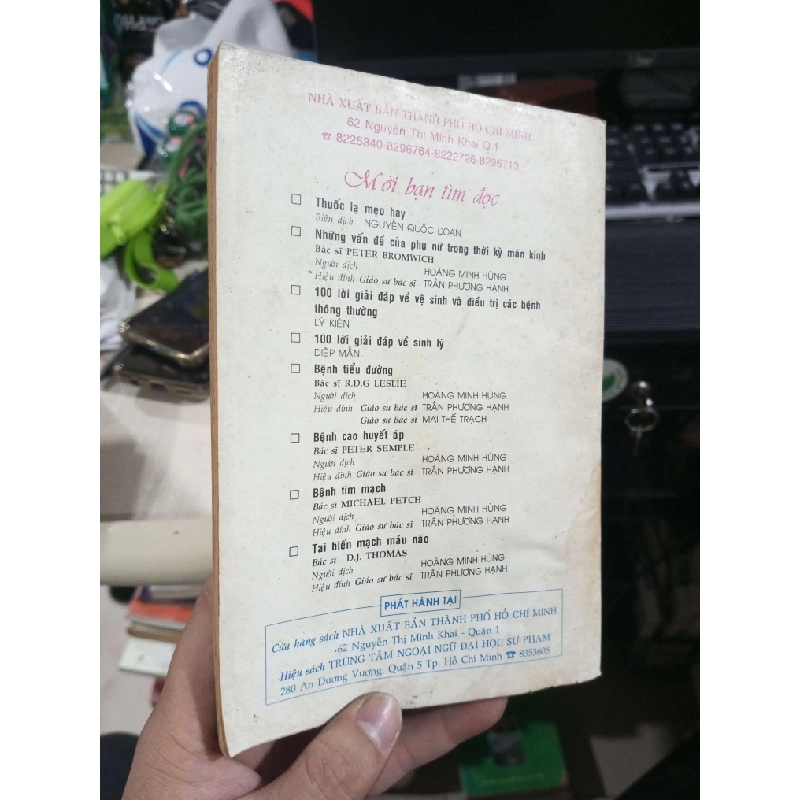 NHÀ XUẤT BẢN THÀNH PHỐ HỒ CHÍ MINH
62 Nguyễn Thị Minh Khai Q.1
☎ 8225340-8296764-8222726-8296713
Mời bạn tìm đọc
☐ Thuốc lạ mẹo hay
Biên dịch NGUYỄN QUỐC ĐOAN
☐ Những vấn đề của phụ nữ trong thời kỳ mãn kinh
Bác sĩ PETER BROMWICH
Người dịch HOÀNG MINH HÙNG
Hiệu đính Giáo sư bác sĩ TRẦN PHƯƠNG HẠNH
☐ 100 lời giải đáp về vệ sinh và điều trị các bệnh
thông thường
LÝ KIÊN
☐ 100 lời giải đáp về sinh lý
DIỆP MẪN
☐ Bệnh tiểu đường
Bác sĩ R.D.G LESLIE
Người dịch HOÀNG MINH HÙNG
Hiệu đính Giáo sư bác sĩ TRẦN PHƯƠNG HẠNH
Giáo sư bác sĩ MAI THẾ TRẠCH
☐ Bệnh cao huyết áp
Bác sĩ PETER SEMPLE
Người dịch HOÀNG MINH HÙNG
Hiệu đính Giáo sư bác sĩ TRẦN PHƯƠNG HẠNH
☐ Bệnh tim mạch
Bác sĩ MICHAEL PETCH
Người dịch HOÀNG MINH HÙNG
Hiệu đính Giáo sư bác sĩ TRẦN PHƯƠNG HẠNH
☐ Tai biến mạch máu não
Bác sĩ D.J. THOMAS
Người dịch HOÀNG MINH HÙNG
Hiệu đính Giáo sư bác sĩ TRẦN PHƯƠNG HẠNH
PHÁT HÀNH TẠI
Cửa hàng sách NHÀ XUẤT BẢN THÀNH PHỐ HỒ CHÍ MINH
62 Nguyễn Thị Minh Khai - Quận 1
Hiệu sách TRUNG TÂM NGOẠI NGỮ ĐẠI HỌC SƯ PHẠM
280 An Dương Vương, Quận 5 Tp. Hồ Chí Minh ☎ 8353608